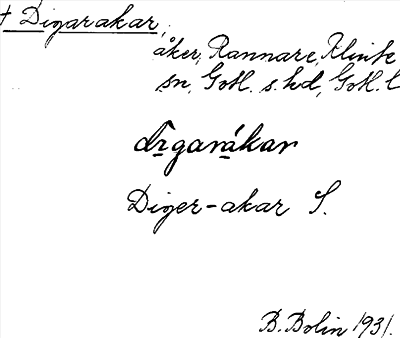 † Digarakar,
åker, Rannare, Klinte
sn, Gotl. s. hd, Gotl. l
digarákar
Diger-akar S.
B. Bolin 1931.